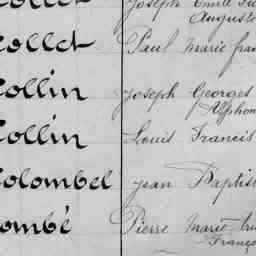 Joseph Emile
Auguste
Collet Paul Marie
Collin Joseph Georges
Alphon
Collin Louis Francis
Colombel Jean Baptis
ombé Pierre Marie
Franço